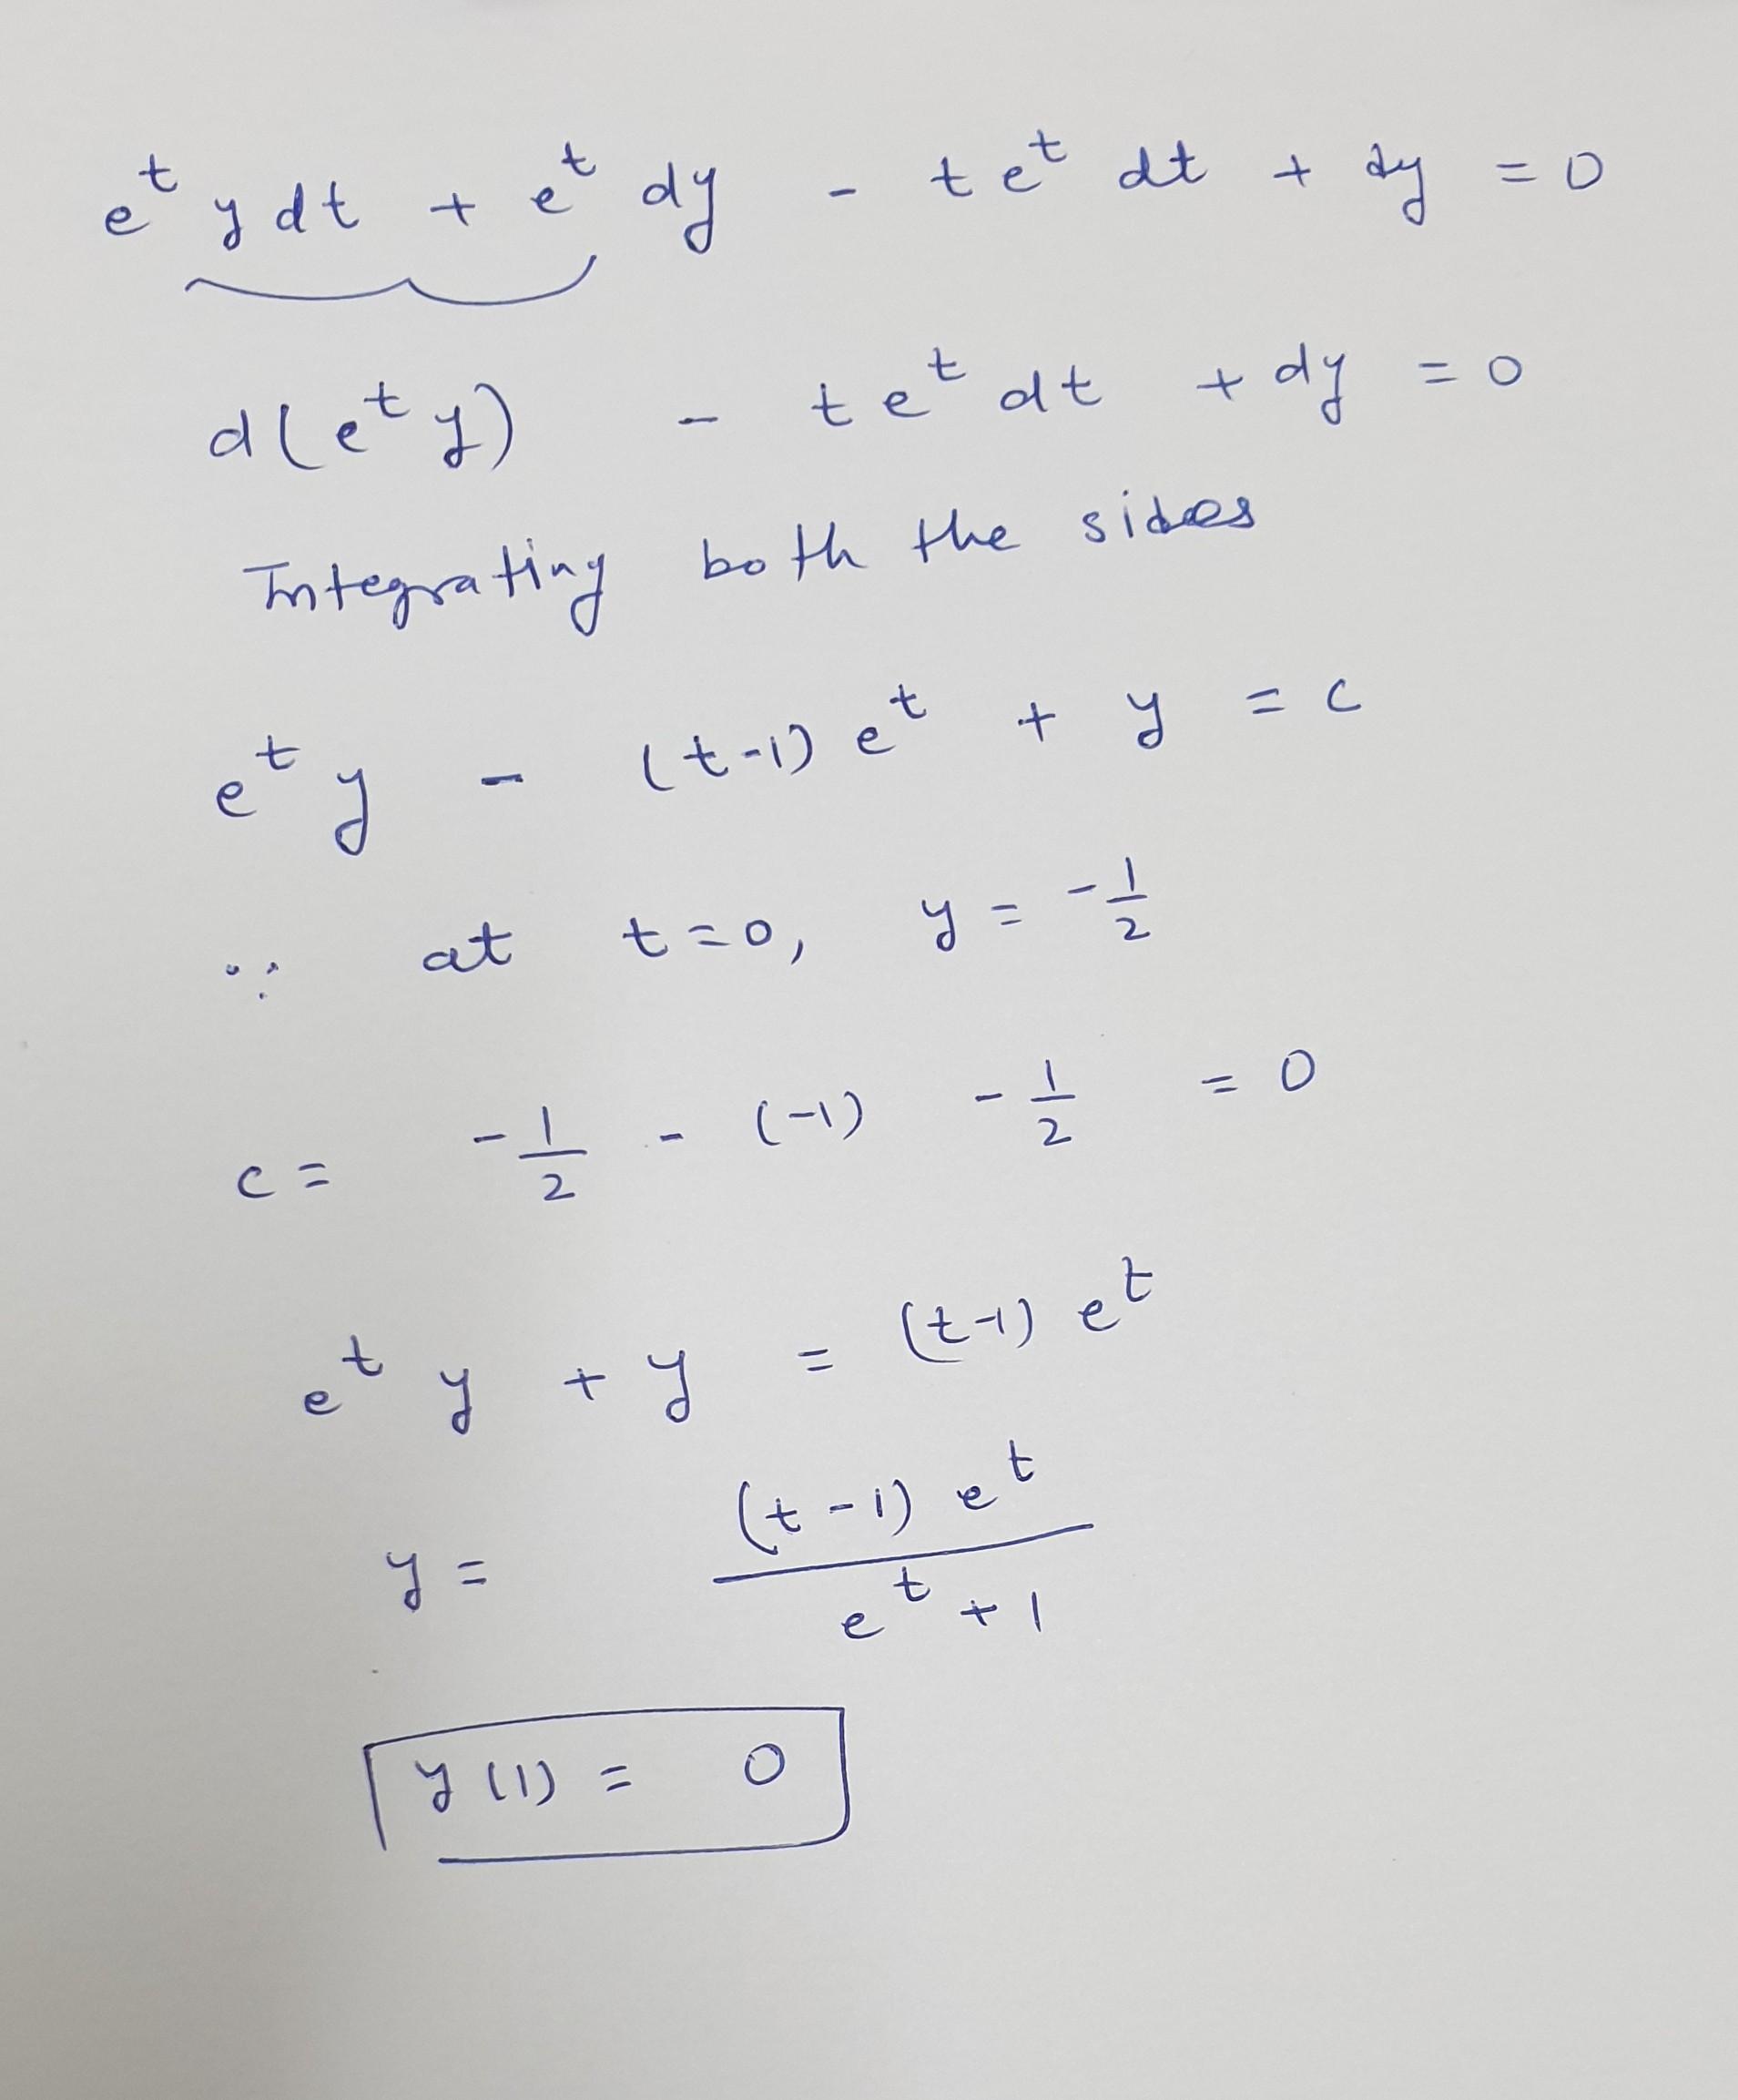 e^t y dt + e^t dy - t e^t dt + dy = 0
d(e^t y) - t e^t dt + dy = 0
Integrating both the sides
e^t y - (t-1) e^t + y = c
∵ at t=0, y = -1/2
c = -1/2 - (-1) - 1/2 = 0
e^t y + y = (t-1) e^t
y = (t-1) e^t / e^t + 1
y(1) = 0